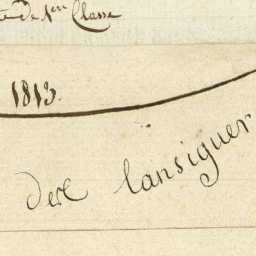 de 1ere Classe
1813.
derl lansiguer